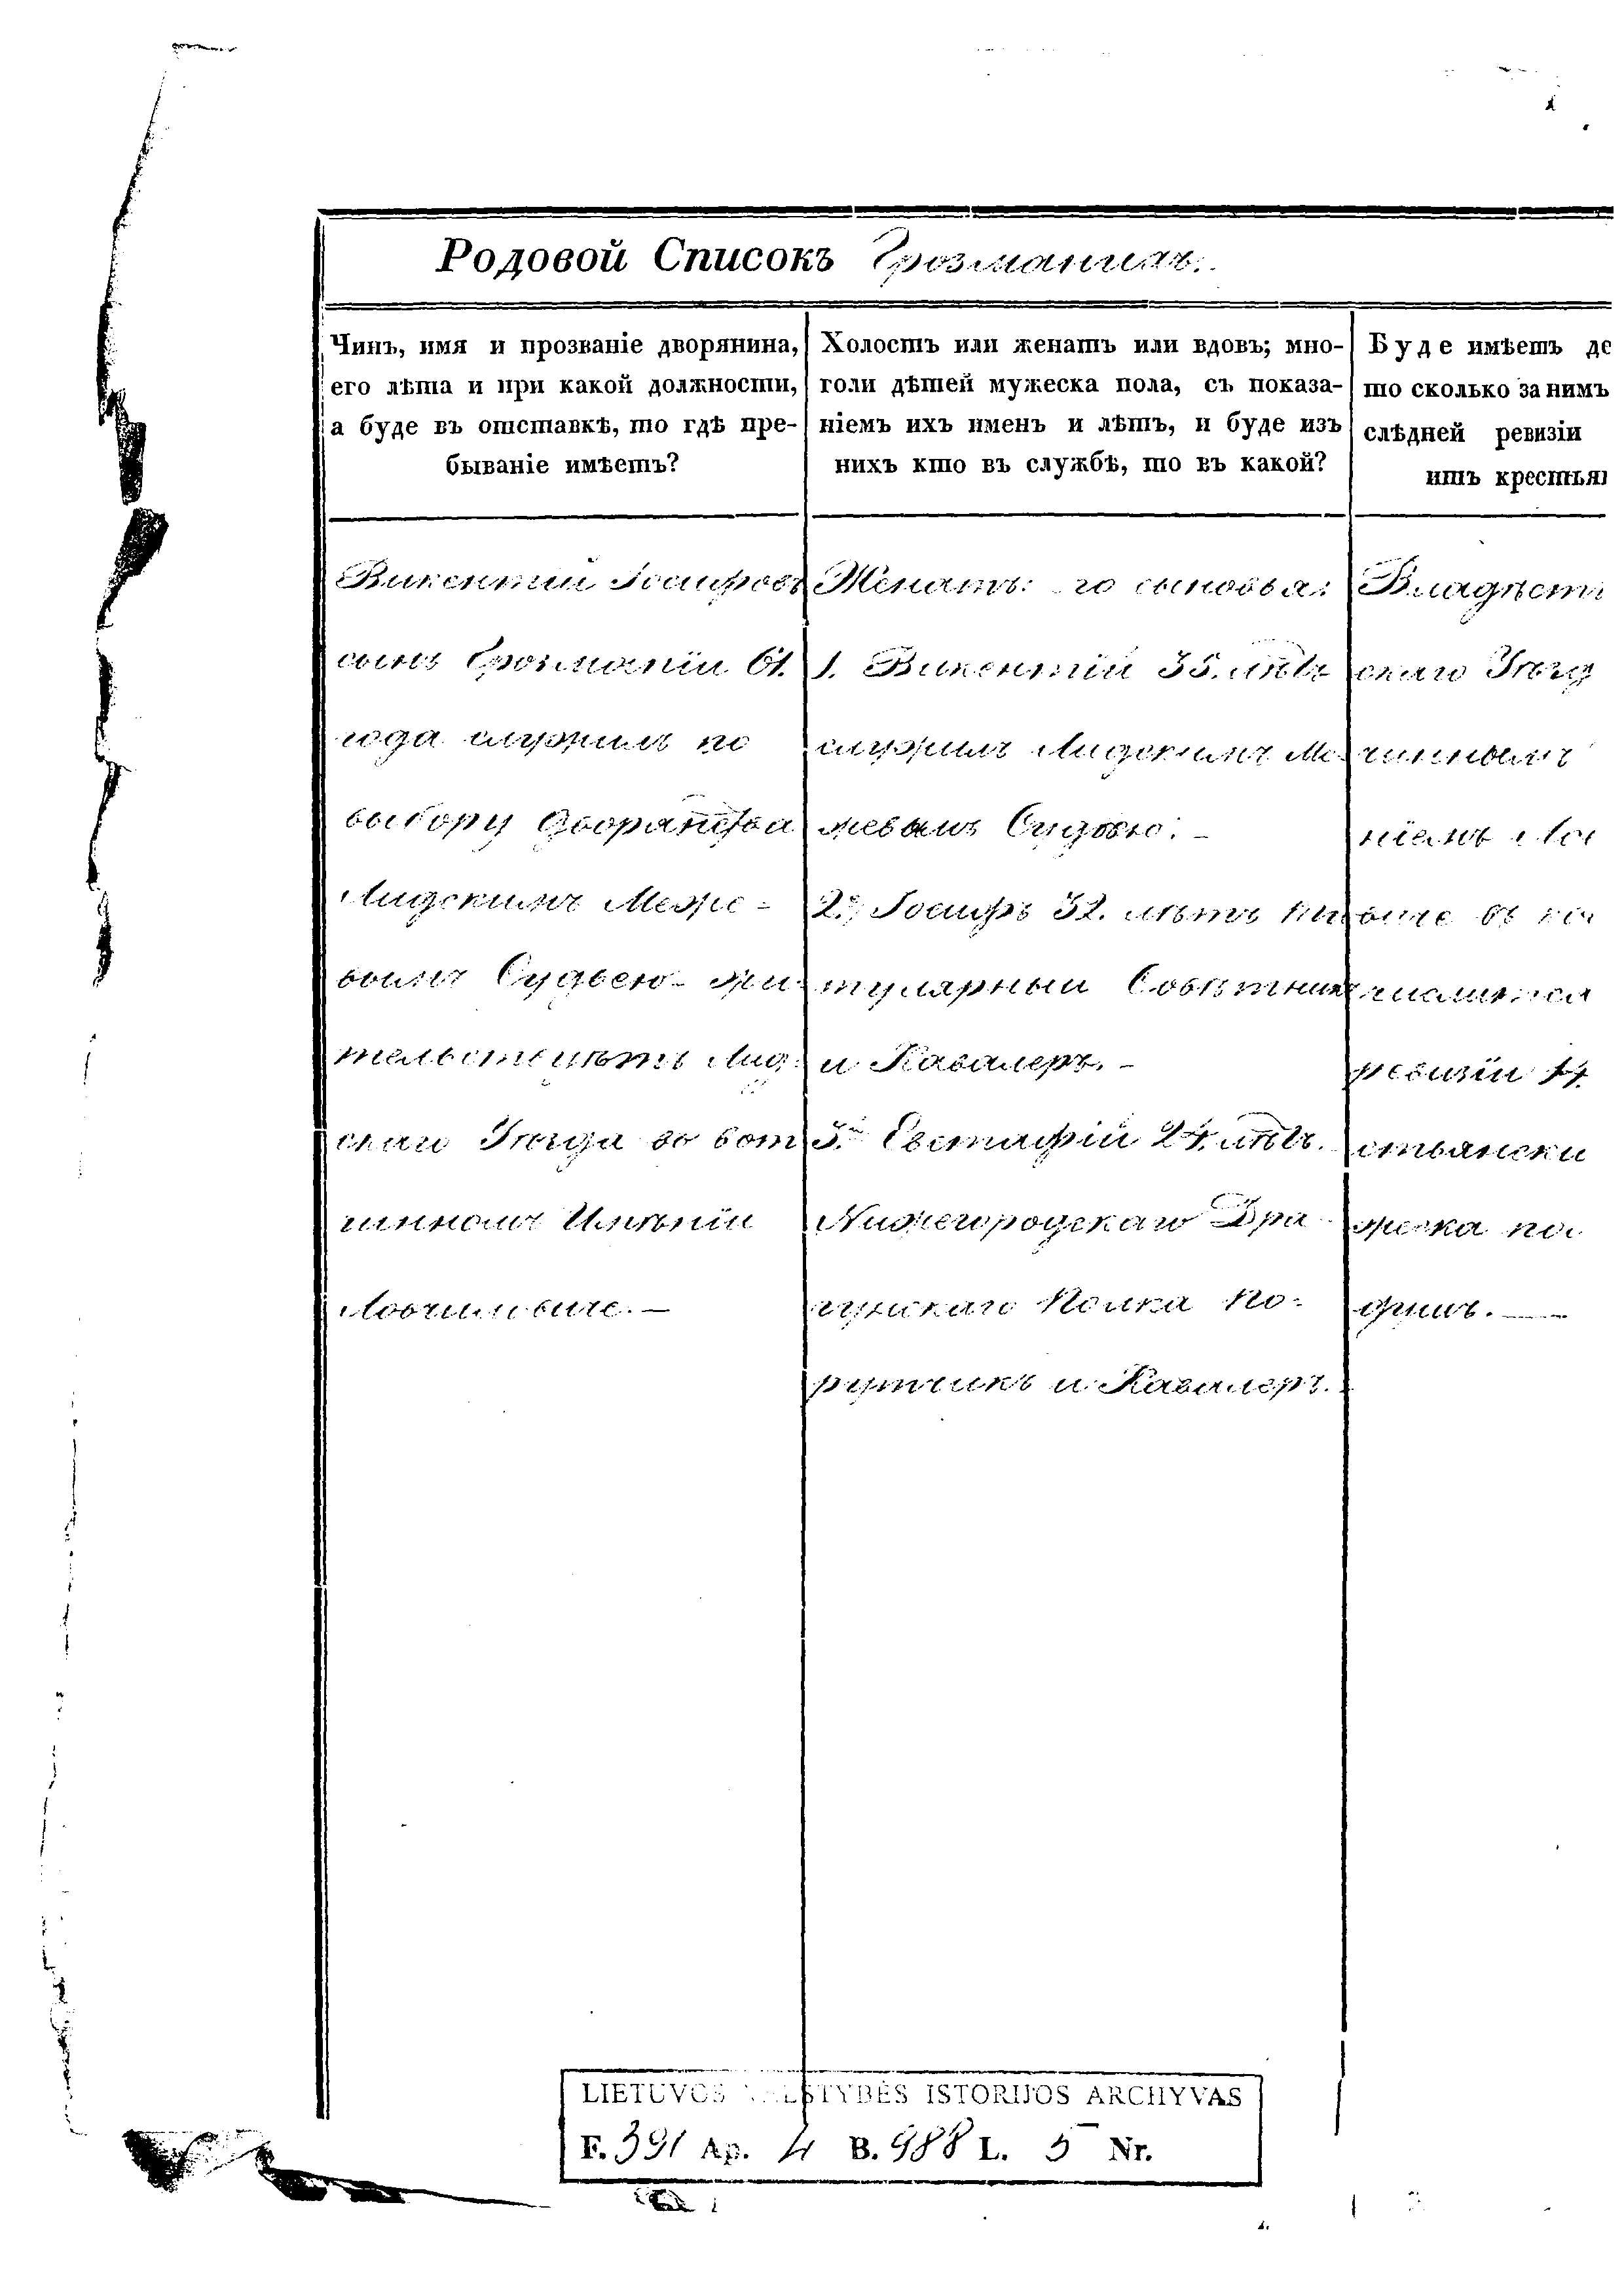 Родовой Списокъ Грозманиихъ.
Чинъ, имя и прозваніе дворянина,
его лѣта и при какой должности,
а буде въ отставкѣ, то гдѣ пре-
бываніе имѣетъ?
Холостъ или женатъ или вдовъ; мно-
голи дѣтей мужеска пола, съ показа-
ніемъ ихъ именъ и лѣтъ, и буде изъ
нихъ кто въ службѣ, то въ какой?
Буде имѣетъ де
то сколько за нимъ
слѣдней ревизіи
итъ крестья
Викентій Іосифовъ
сынъ Грозманій 61.
года служилъ по
выбору Дворянства
Лидскимъ Меже-
вымъ Судьею жи-
тельствуетъ Лид-
скаго Уѣзда во вот
чинномъ Имѣніи
Женатъ: его сыновья:
1. Викентій 35. лѣтъ
служилъ Лидскимъ Ме-
жевымъ Судьею. -
2. Іосифъ 32. лѣтъ Ти
тулярный Совѣтникъ
и Кавалеръ. -
3. Евстафій 24. лѣтъ.
Нижегородскаго Дра
гунскаго Полка По-
ручикъ и Кавалеръ.
Владѣетъ
скаго Уѣзд
чиннымъ
ніемъ
ревизіи
стьянски
жеска пол
душъ. —
LIETUVOS VALSTYBĖS ISTORIJOS ARCHYVAS
F. 391 Ap. 4 B. 988 L. 5 Nr.